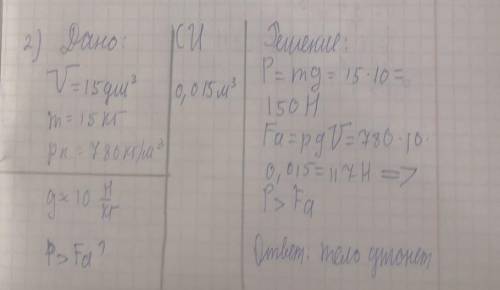 2) Дано:
V=15дм³
m=15кг
ρк=780кг/м³
g≈10 Н/кг
P>Fa?
СИ
0,015м³
Решение:
P=mg=15·10=
150Н
Fa=ρgV=780·10·
0,015=117Н=>
P>Fa
Ответ: тело утонет